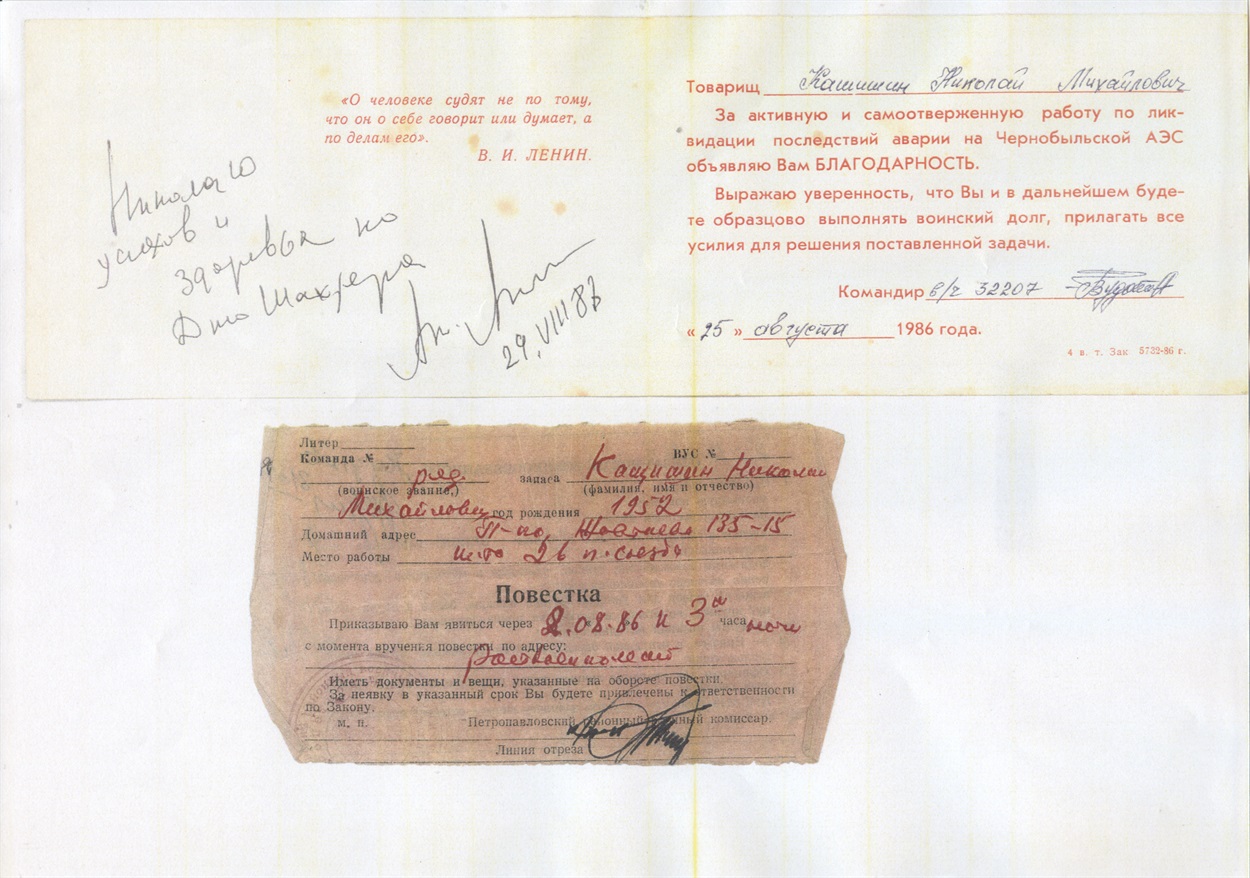 «О человеке судят не по тому,
что он о себе говорит или думает, а
по делам его».
В. И. ЛЕНИН.
Николаю
успехов и
здоровья на
Дню Шахтера
29. VIII 87
Товарищ Кашишин Николай Михайлович
За активную и самоотверженную работу по лик-
видации последствий аварии на Чернобыльской АЭС
объявляю Вам БЛАГОДАРНОСТЬ.
Выражаю уверенность, что Вы и в дальнейшем буде-
те образцово выполнять воинский долг, прилагать все
усилия для решения поставленной задачи.
Командир в/ч 32207
« 25 » августа 1986 года.
4 в. т. Зак 5732-86 г.
Литер
Команда № ВУС №
ряд. запаса Кашишин Николай
(воинское звание,) (фамилия, имя и отчество)
Михайлович год рождения 1952
Домашний адрес П-ка, 135-15
Место работы 26 п. съезда
Повестка
Приказываю Вам явиться через 2.08.86 к 3м часа ночи
с момента вручения повестки по адресу:
Райвоенкомат
Иметь документы и вещи, указанные на обороте повестки.
За неявку в указанный срок Вы будете привлечены к ответственности
по Закону.
м. п. Петропавловский районный военный комиссар.
Линия отреза